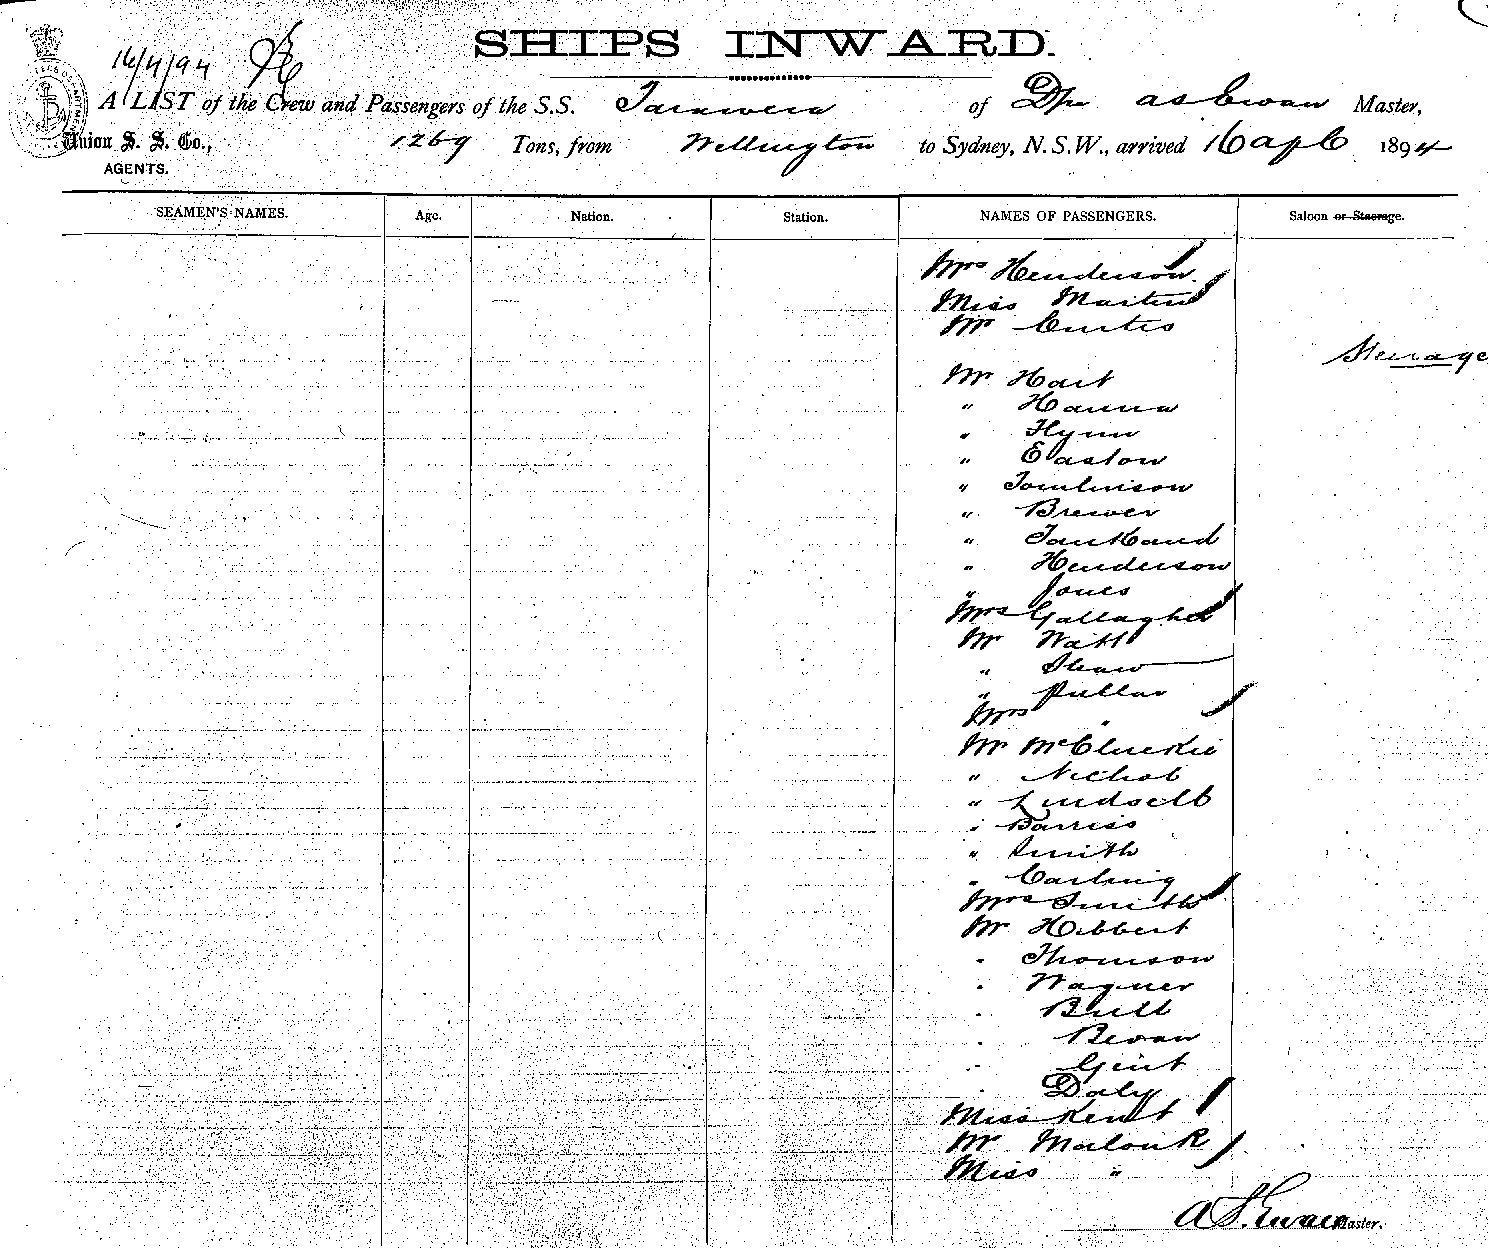 SHIPS INWARD.
16/4/94
A LIST of the Crew and Passengers of the S.S. Tarawera of Dn as Ewan Master,
Union S. S. Co.,
AGENTS.
1269 Tons, from Wellington to Sydney, N.S.W., arrived 16 apl 1894
SEAMEN'S NAMES. Age. Nation. Station. NAMES OF PASSENGERS. Saloon or Steerage.
Mrs Henderson
Miss Martin
Mr Curtis
Steerage
Mr Hart
" Hanna
" Flynn
" Easton
" Tomlinson
" Brewer
"
" Henderson
" Jones
Mrs Gallagher
Mr Watt
" Shaw
" Pullar
Mrs "
Mr McCluskie
" Nichol
" Lindsell
" Barriss
" Smith
" Carling
Mrs Smith
Mr Hibbert
" Thomson
" Wagner
" Bull
" Bevan
" Gint
" Daly
Miss Kent
Mr Malouk
Miss "
Master.